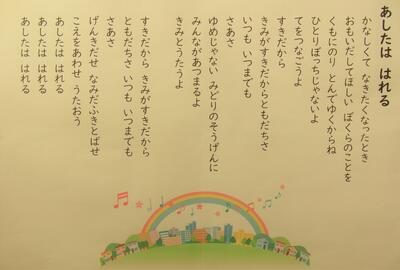 あしたは はれる
かなしくて なきたくなったとき
おもいだしてほしい ぼくらのことを
くもにのり とんでゆくからね
ひとりぼっちじゃないよ
てをつなごうよ
すきだから
きみがすきだからともだちさ
いつも いつまでも
さあさ
ゆめじゃない みどりのそうげんに
みんながあつまるよ
きみとうたうよ
すきだから きみがすきだから
ともだちさ いつも いつまでも
さあさ
げんきだせ なみだふきとばせ
こえをあわせ うたおう
あしたは はれる
あしたは はれる
あしたは はれる